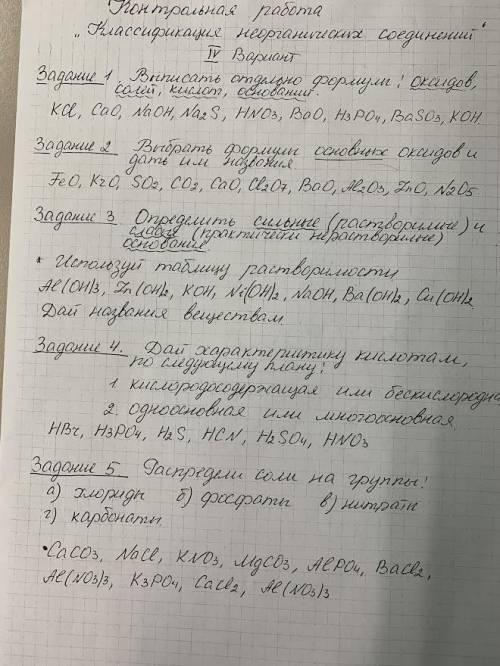 Контрольная работа
„Классификация неорганических соединений"
IV Вариант
Задание 1. Выписать отдельно формулы: оксидов,
солей, кислот, оснований.
KCl, CaO, NaOH, Na2S, HNO3, BaO, H3PO4, BaSO3, KOH.
Задание 2 Выбрать формулы основных оксидов и
дать им названия
FeO, K2O, SO2, CO2, CaO, Cl2O7, BaO, Al2O3, ZnO, N2O5.
Задание 3 Определить сильные (растворимые) и
слабые (практически нерастворимые)
основание.
* Используй таблицу растворимости
Al(OH)3, Zn(OH)2, KOH, Ni(OH)2, NaOH, Ba(OH)2, Cu(OH)2.
Дай названия веществам.
Задание 4. Дай характеристику кислотам,
по следующему плану:
1 кислородосодержащая или бескислородна
2. одноосновная или многоосновная.
HBr, H3PO4, H2S, HCN, H2SO4, HNO3
Задание 5 Распредели соли на группы:
а) хлориды б) фосфаты в) нитраты
г) карбонаты.
• CaCO3, NaCl, KNO3, MgCO3, AlPO4, BaCl2,
Al(NO3)3, K3PO4, CaCl2, Al(NO3)3